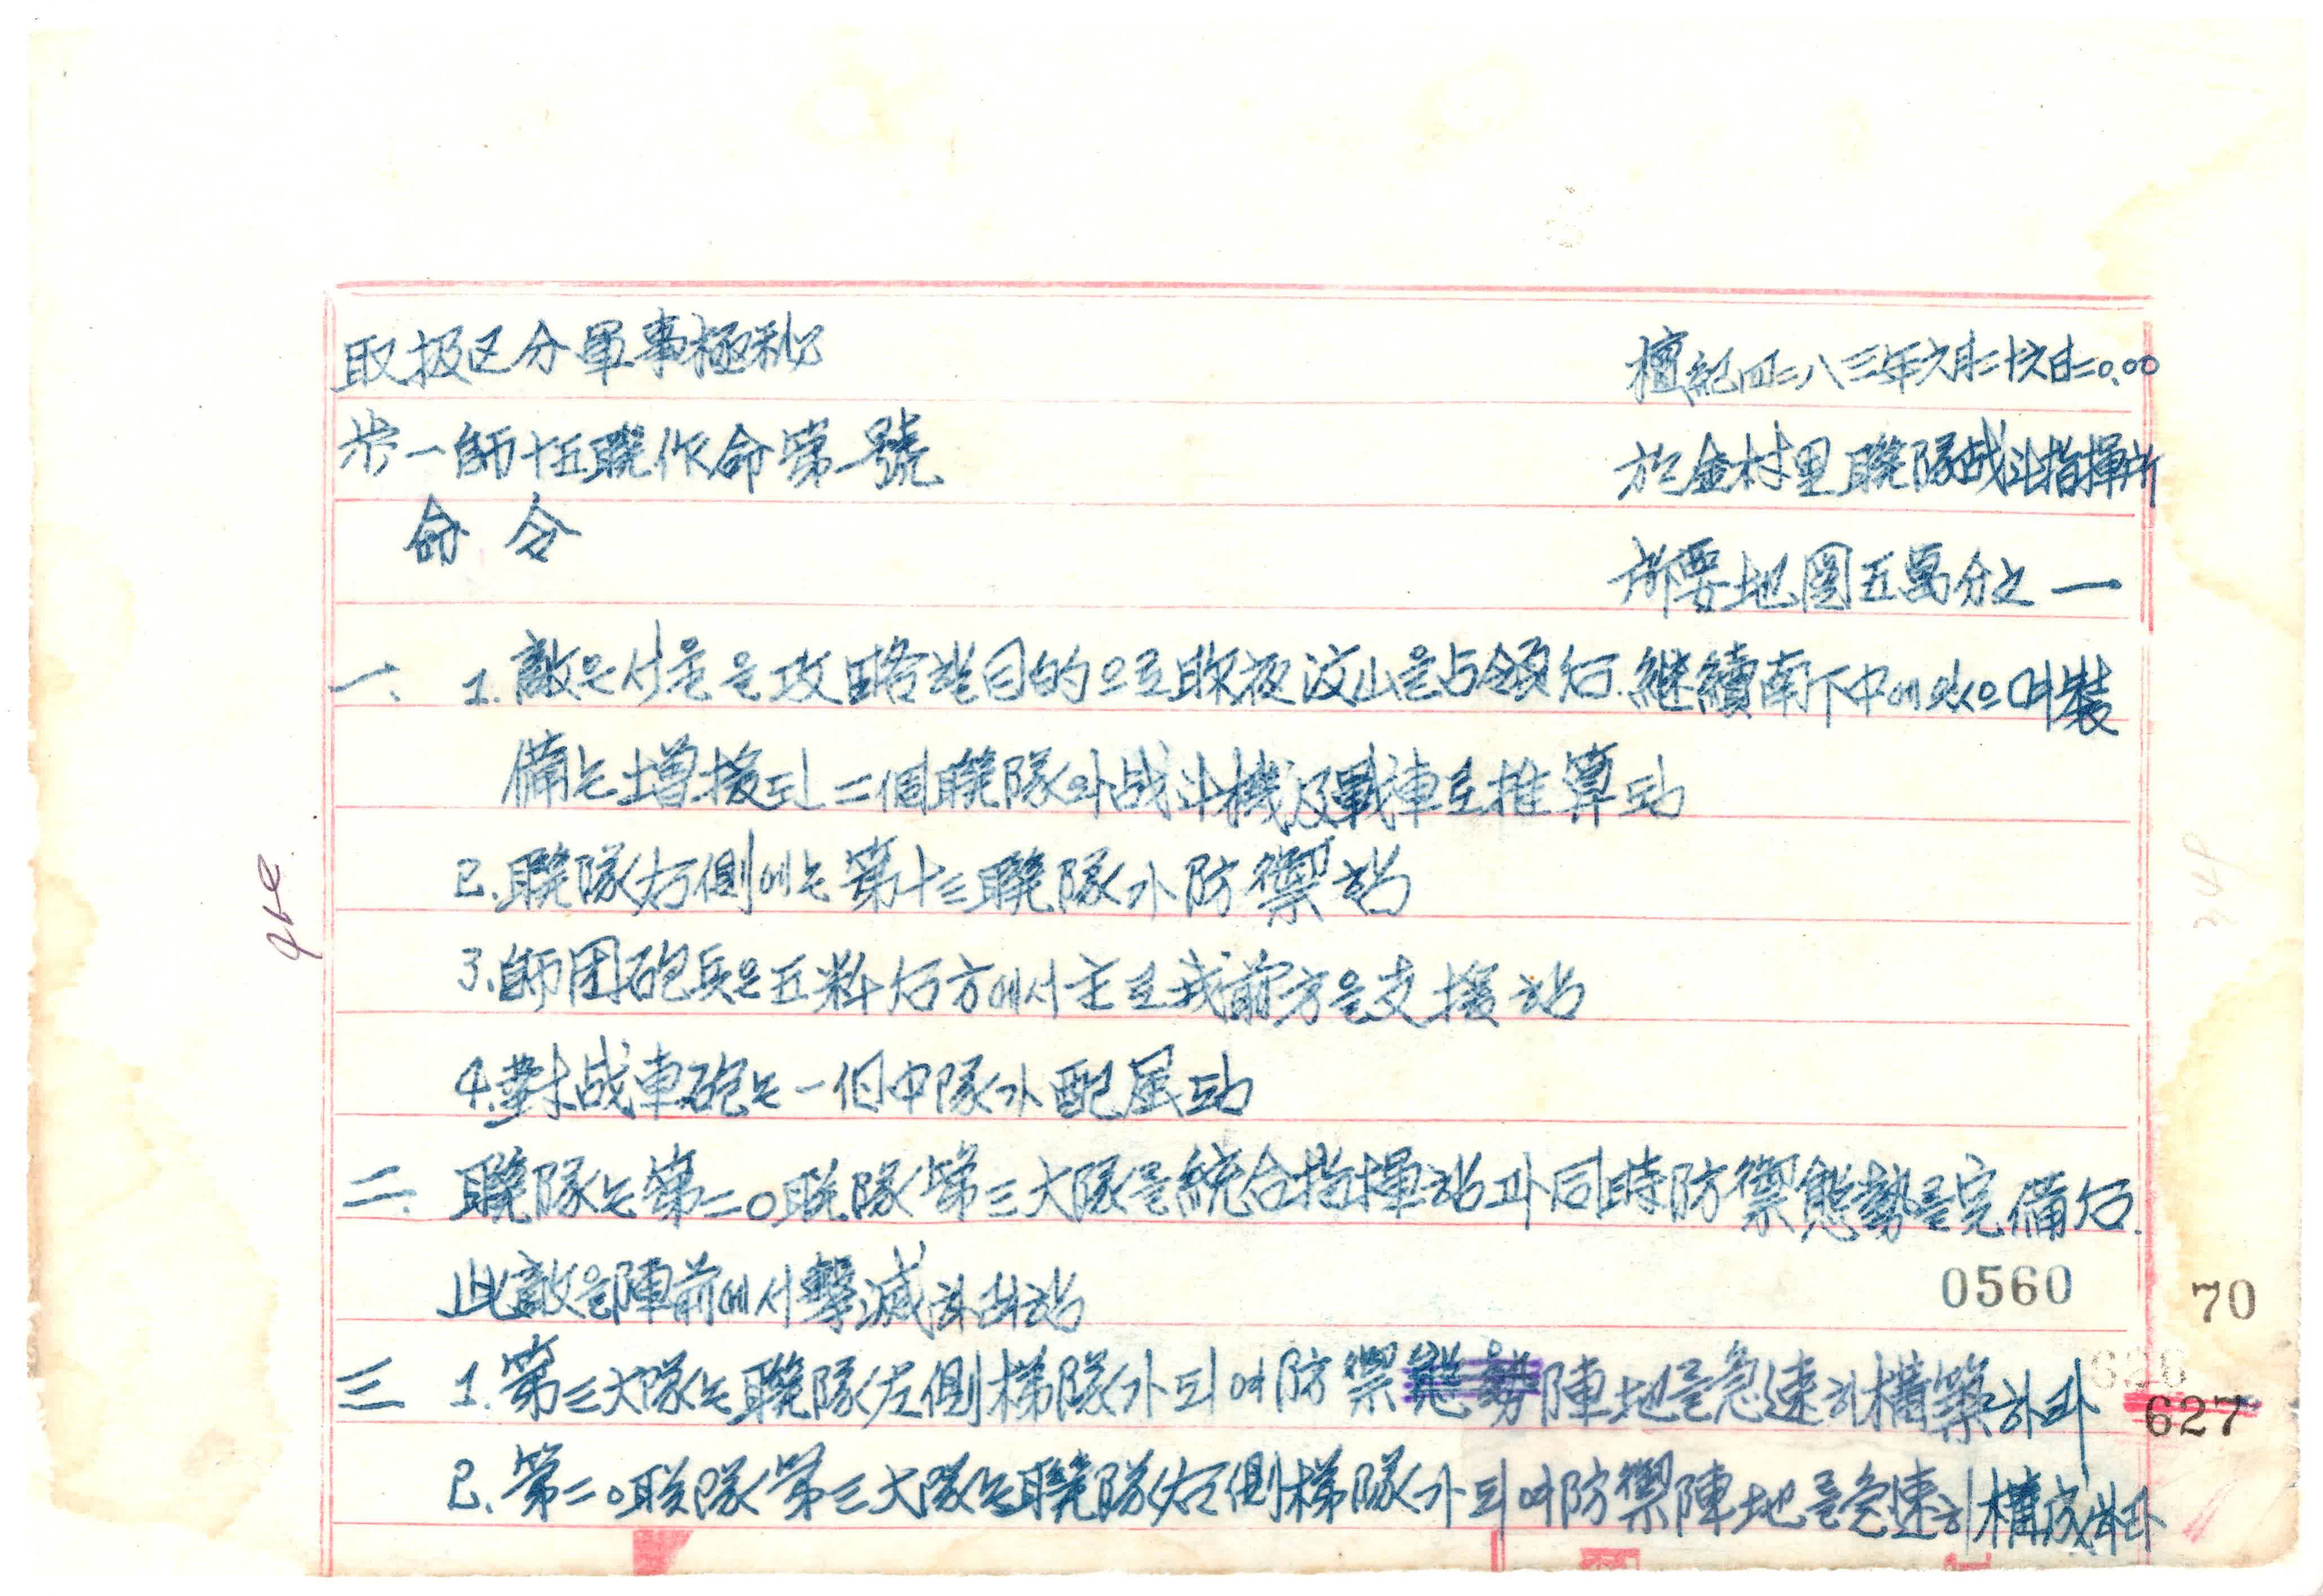 取扱区分軍事極秘
檀紀四二八三年六月二十六日二〇.〇〇
步一師十五聯作命第一號
於金村里聯隊战斗指揮所
命 令
所要地圖五萬分之一
一. 1. 敵은서울을攻略할目的으로昨夜汶山을占領后.継續南下中에있으며裝
備는增援된二個聯隊와战斗機及戰車로推算됨
2. 聯隊右側에는第十三聯隊가防禦함
3. 師团砲兵은五粁后方에서主로我前方을支援함
4. 對战車砲는一個中隊가配屬됨
二. 聯隊는第二〇聯隊第三大隊를統合指揮함과同時防禦態勢를完備后.
此敵을陣前에서擊滅하려함
0560
70
三 1. 第三大隊는聯隊左側梯隊가되여防禦陣地를急速히構築하라
626
627
2. 第二〇聯隊第三大隊는聯隊右側梯隊가되여防禦陣地를急速히構成하라